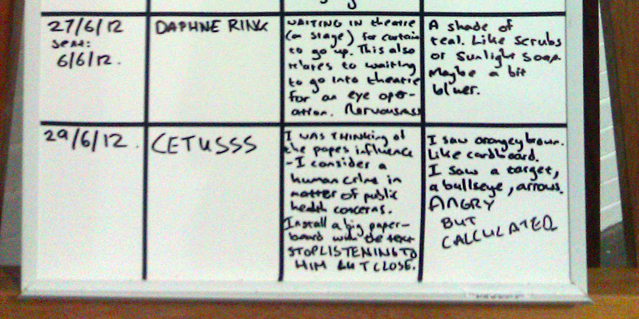 27/6/12
SENT:
6/6/12.
DAPHNE RINK
WAITING IN theatre
(on stage) for curtain
to go up. This also
relates to waiting
to go into theatre
for an eye oper-
ation. Nervousness
A shade of
teal. Like Scrubs
or Sunlight soap.
Maybe a bit
bluer.
29/6/12.
CETUSSS
I WAS THINKING of
the popes influence
- I consider a
human crime in
matter of public
health concerns.
Install a big paper-
board with the text
STOP LISTENING TO
HIM CLOSE.
I saw orangey brown.
Like cardboard.
I saw a target,
a bullseye, arrows.
ANGRY
BUT
CALCULATED